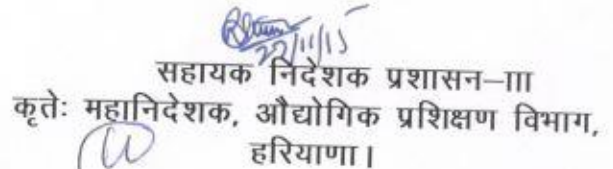 22/11/15
सहायक निदेशक प्रशासन–III
कृतेः महानिदेशक, औद्योगिक प्रशिक्षण विभाग,
हरियाणा।